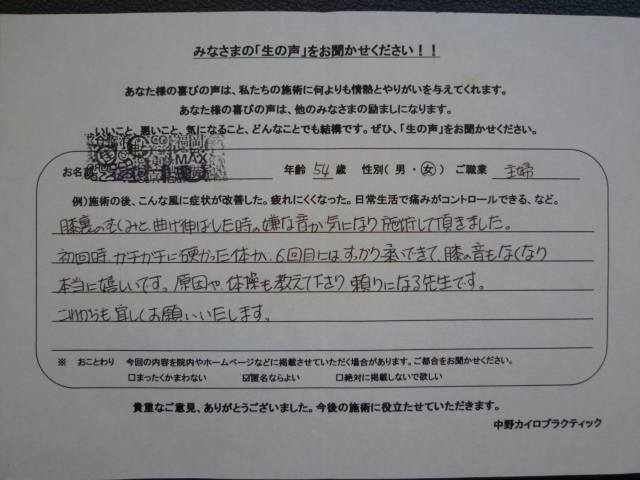 みなさまの「生の声」をお聞かせください！！
あなた様の喜びの声は、私たちの施術に何よりも情熱とやりがいを与えてくれます。
あなた様の喜びの声は、他のみなさまの励ましになります。
いいこと、悪いこと、気になること、どんなことでも結構です。ぜひ、「生の声」をお聞かせください。
お名 年齢 54 歳 性別（男・女）ご職業 主婦
例）施術の後、こんな風に症状が改善した。疲れにくくなった。日常生活で痛みがコントロールできる、など。
膝裏のむくみと、曲げ伸ばした時の嫌な音が気になり施術して頂きました。
初回時、ガチガチに硬かった体が、6回目にはすっかり柔いできて、膝の音もなくなり
本当に嬉しいです。原因や体操も教えて下さり頼りになる先生です。
これからも宜しくお願いいたします。
※ おことわり 今回の内容を院内やホームページなどに掲載させていただく場合があります。ご都合をお聞かせください。
□まったくかまわない ☑匿名ならよい □絶対に掲載しないで欲しい
貴重なご意見、ありがとうございました。今後の施術に役立たせていただきます。
中野カイロプラクティック